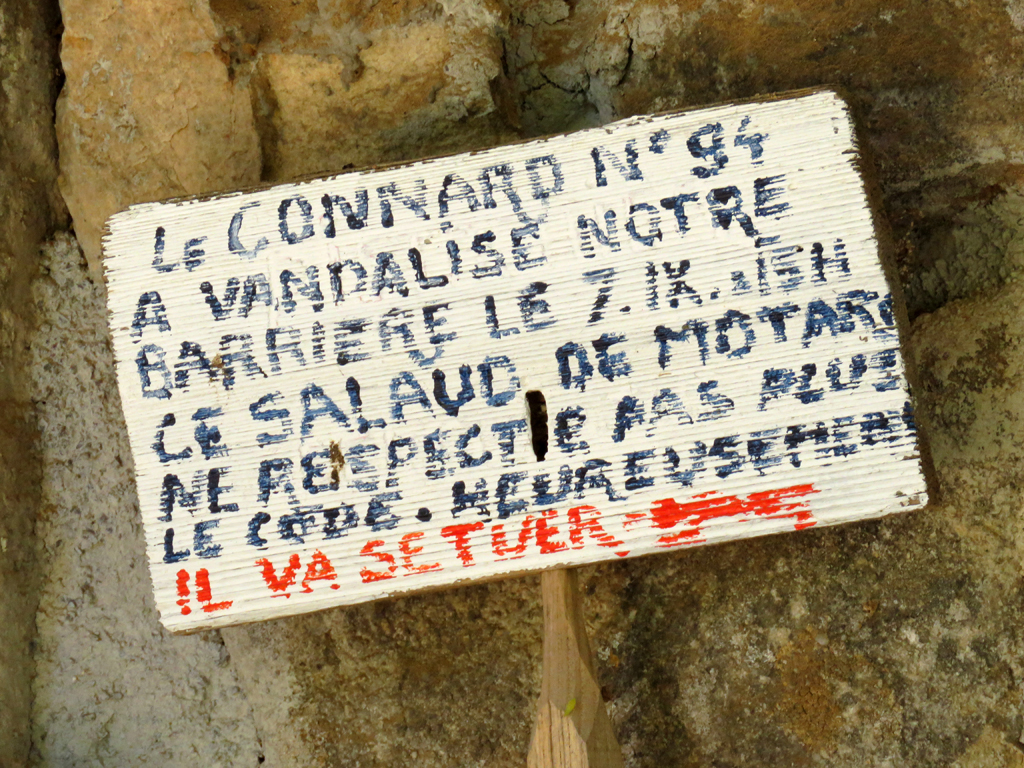 Le CONNARD N° 94
A VANDALISÉ NOTRE
BARRIERE LE 7.IX. 15H
CE SALAUD DE MOTARD
NE RESPECTE PAS PLUS
LE CODE. HEUREUSEMENT
IL VA SE TUER